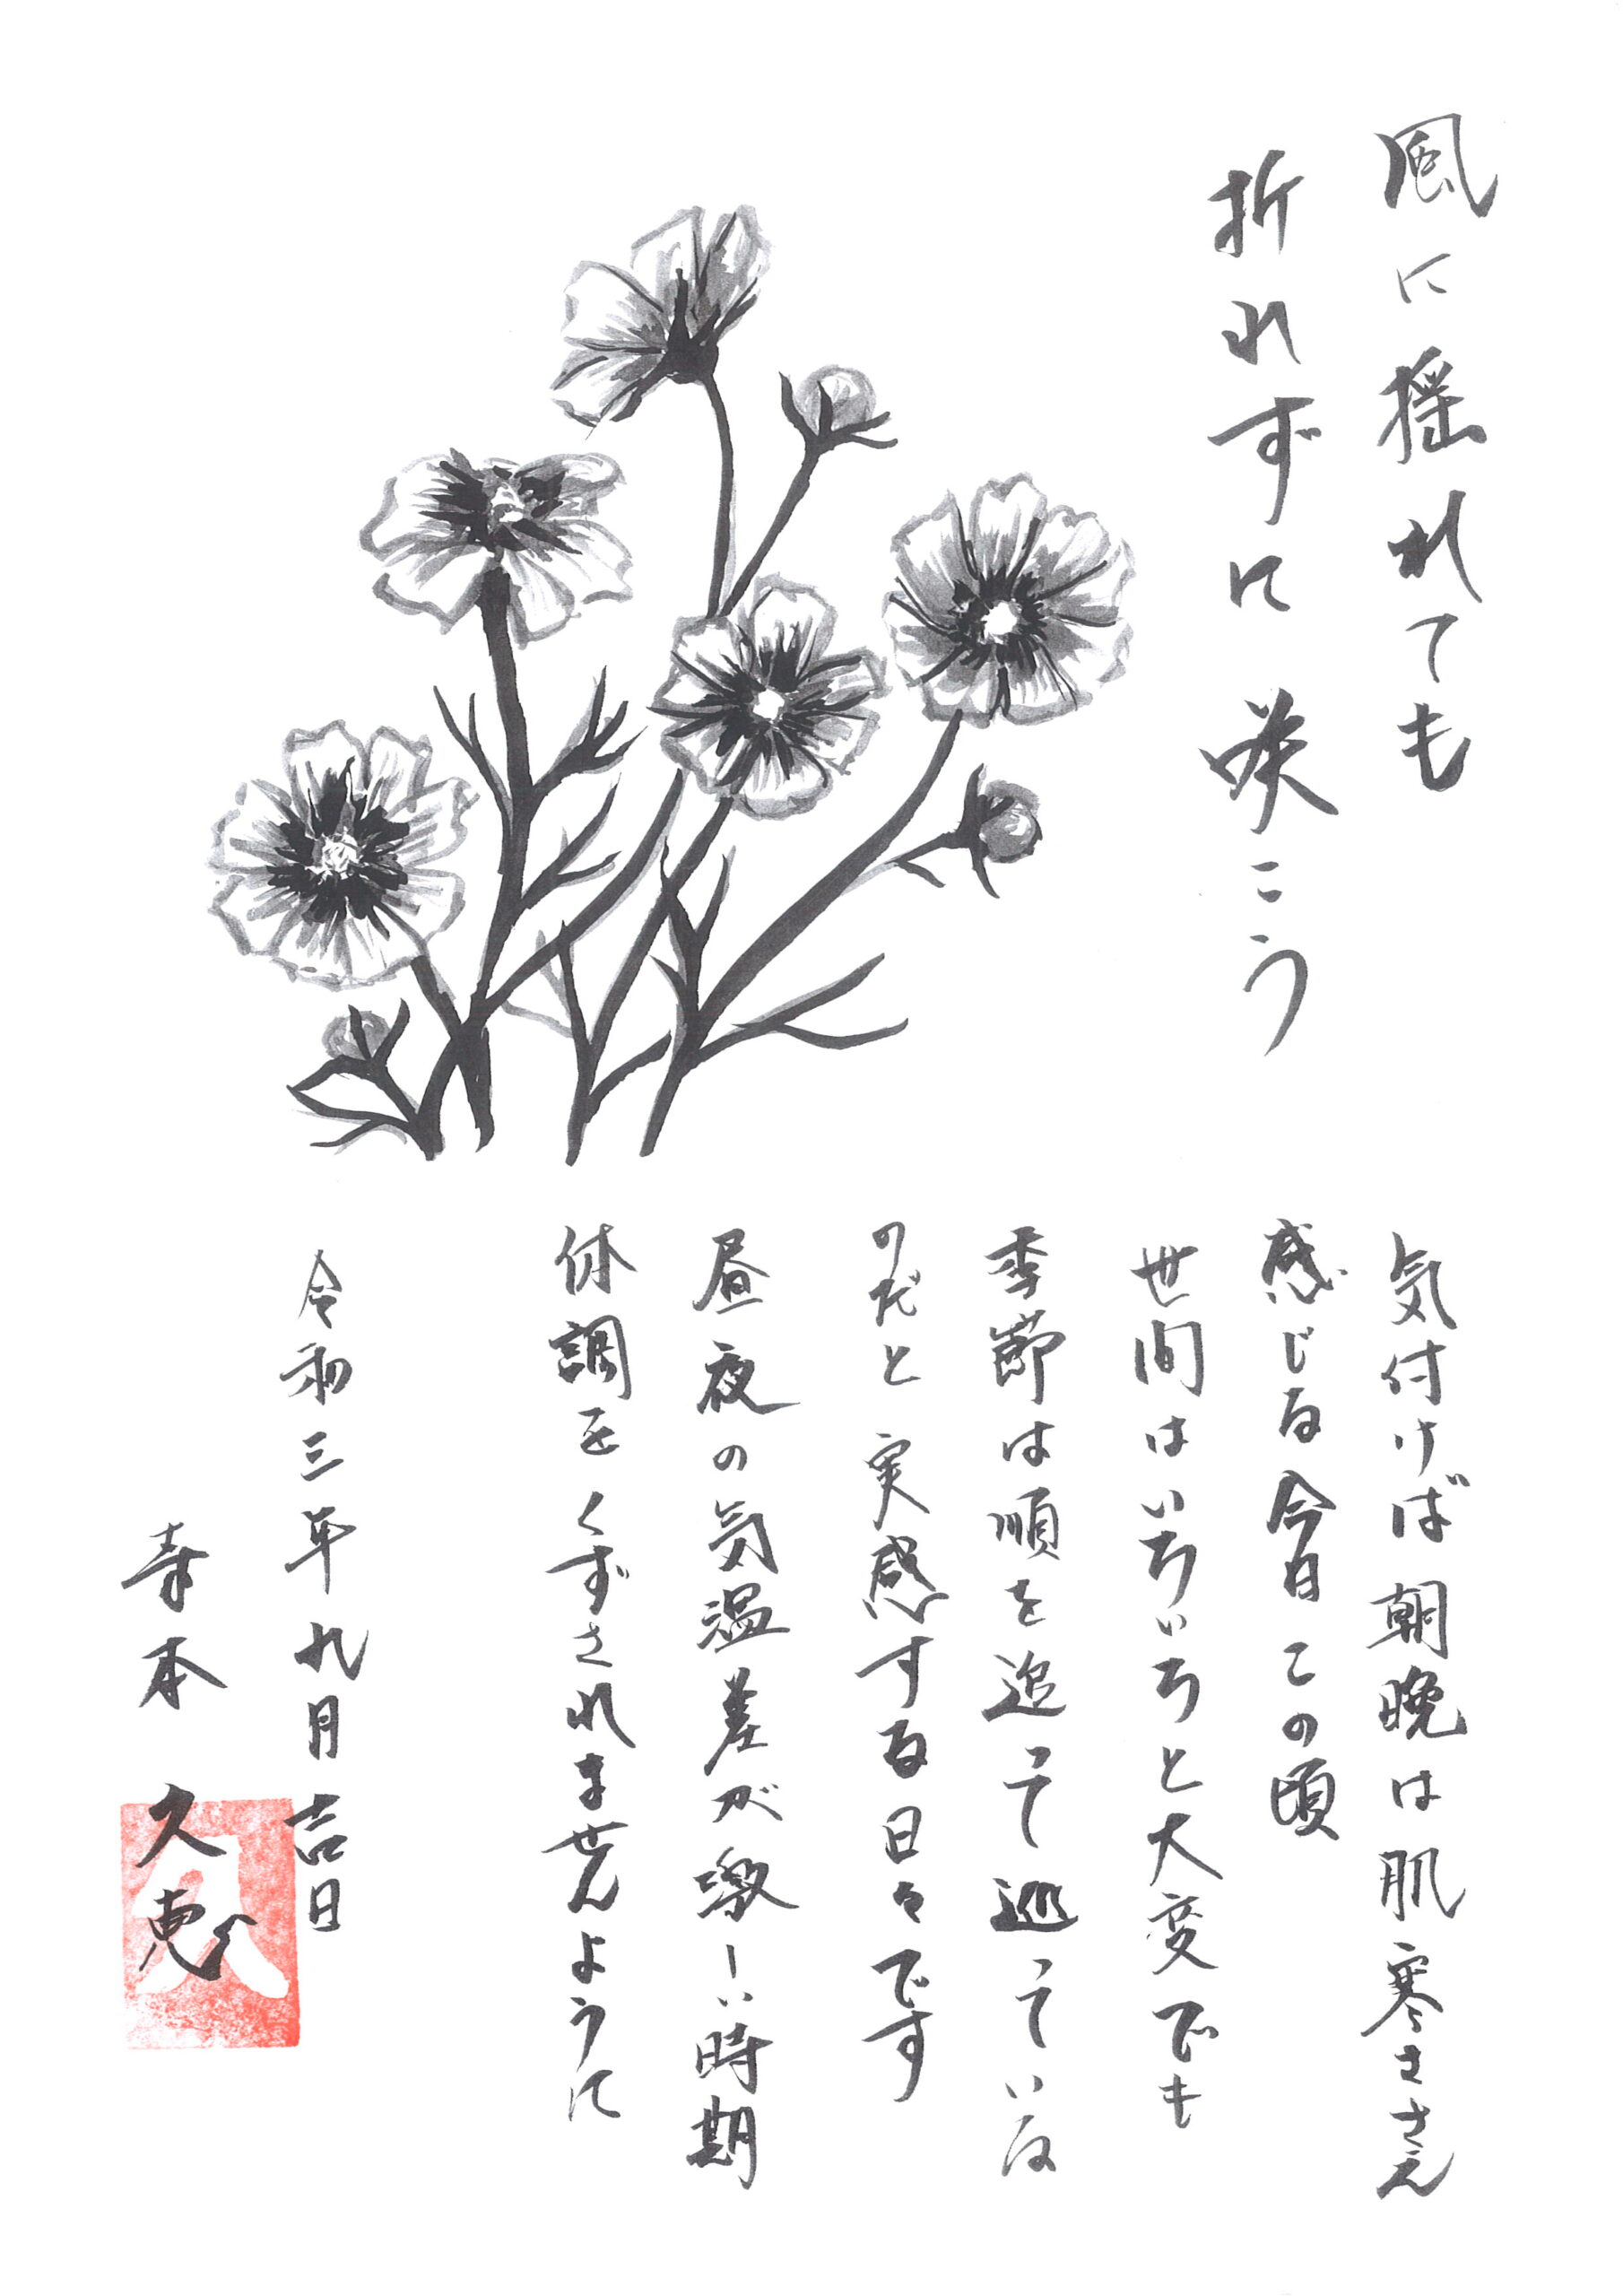 風に揺れても
折れずに咲こう
気付けば朝晩は肌寒ささえ
感じる今日この頃
世間はいちいちと大変でも
季節は順を追って巡っている
のだと実感する日々です
昼夜の気温差が激しい時期
体調をくずされませんように
令和三年九月吉日
寺本久恵
久